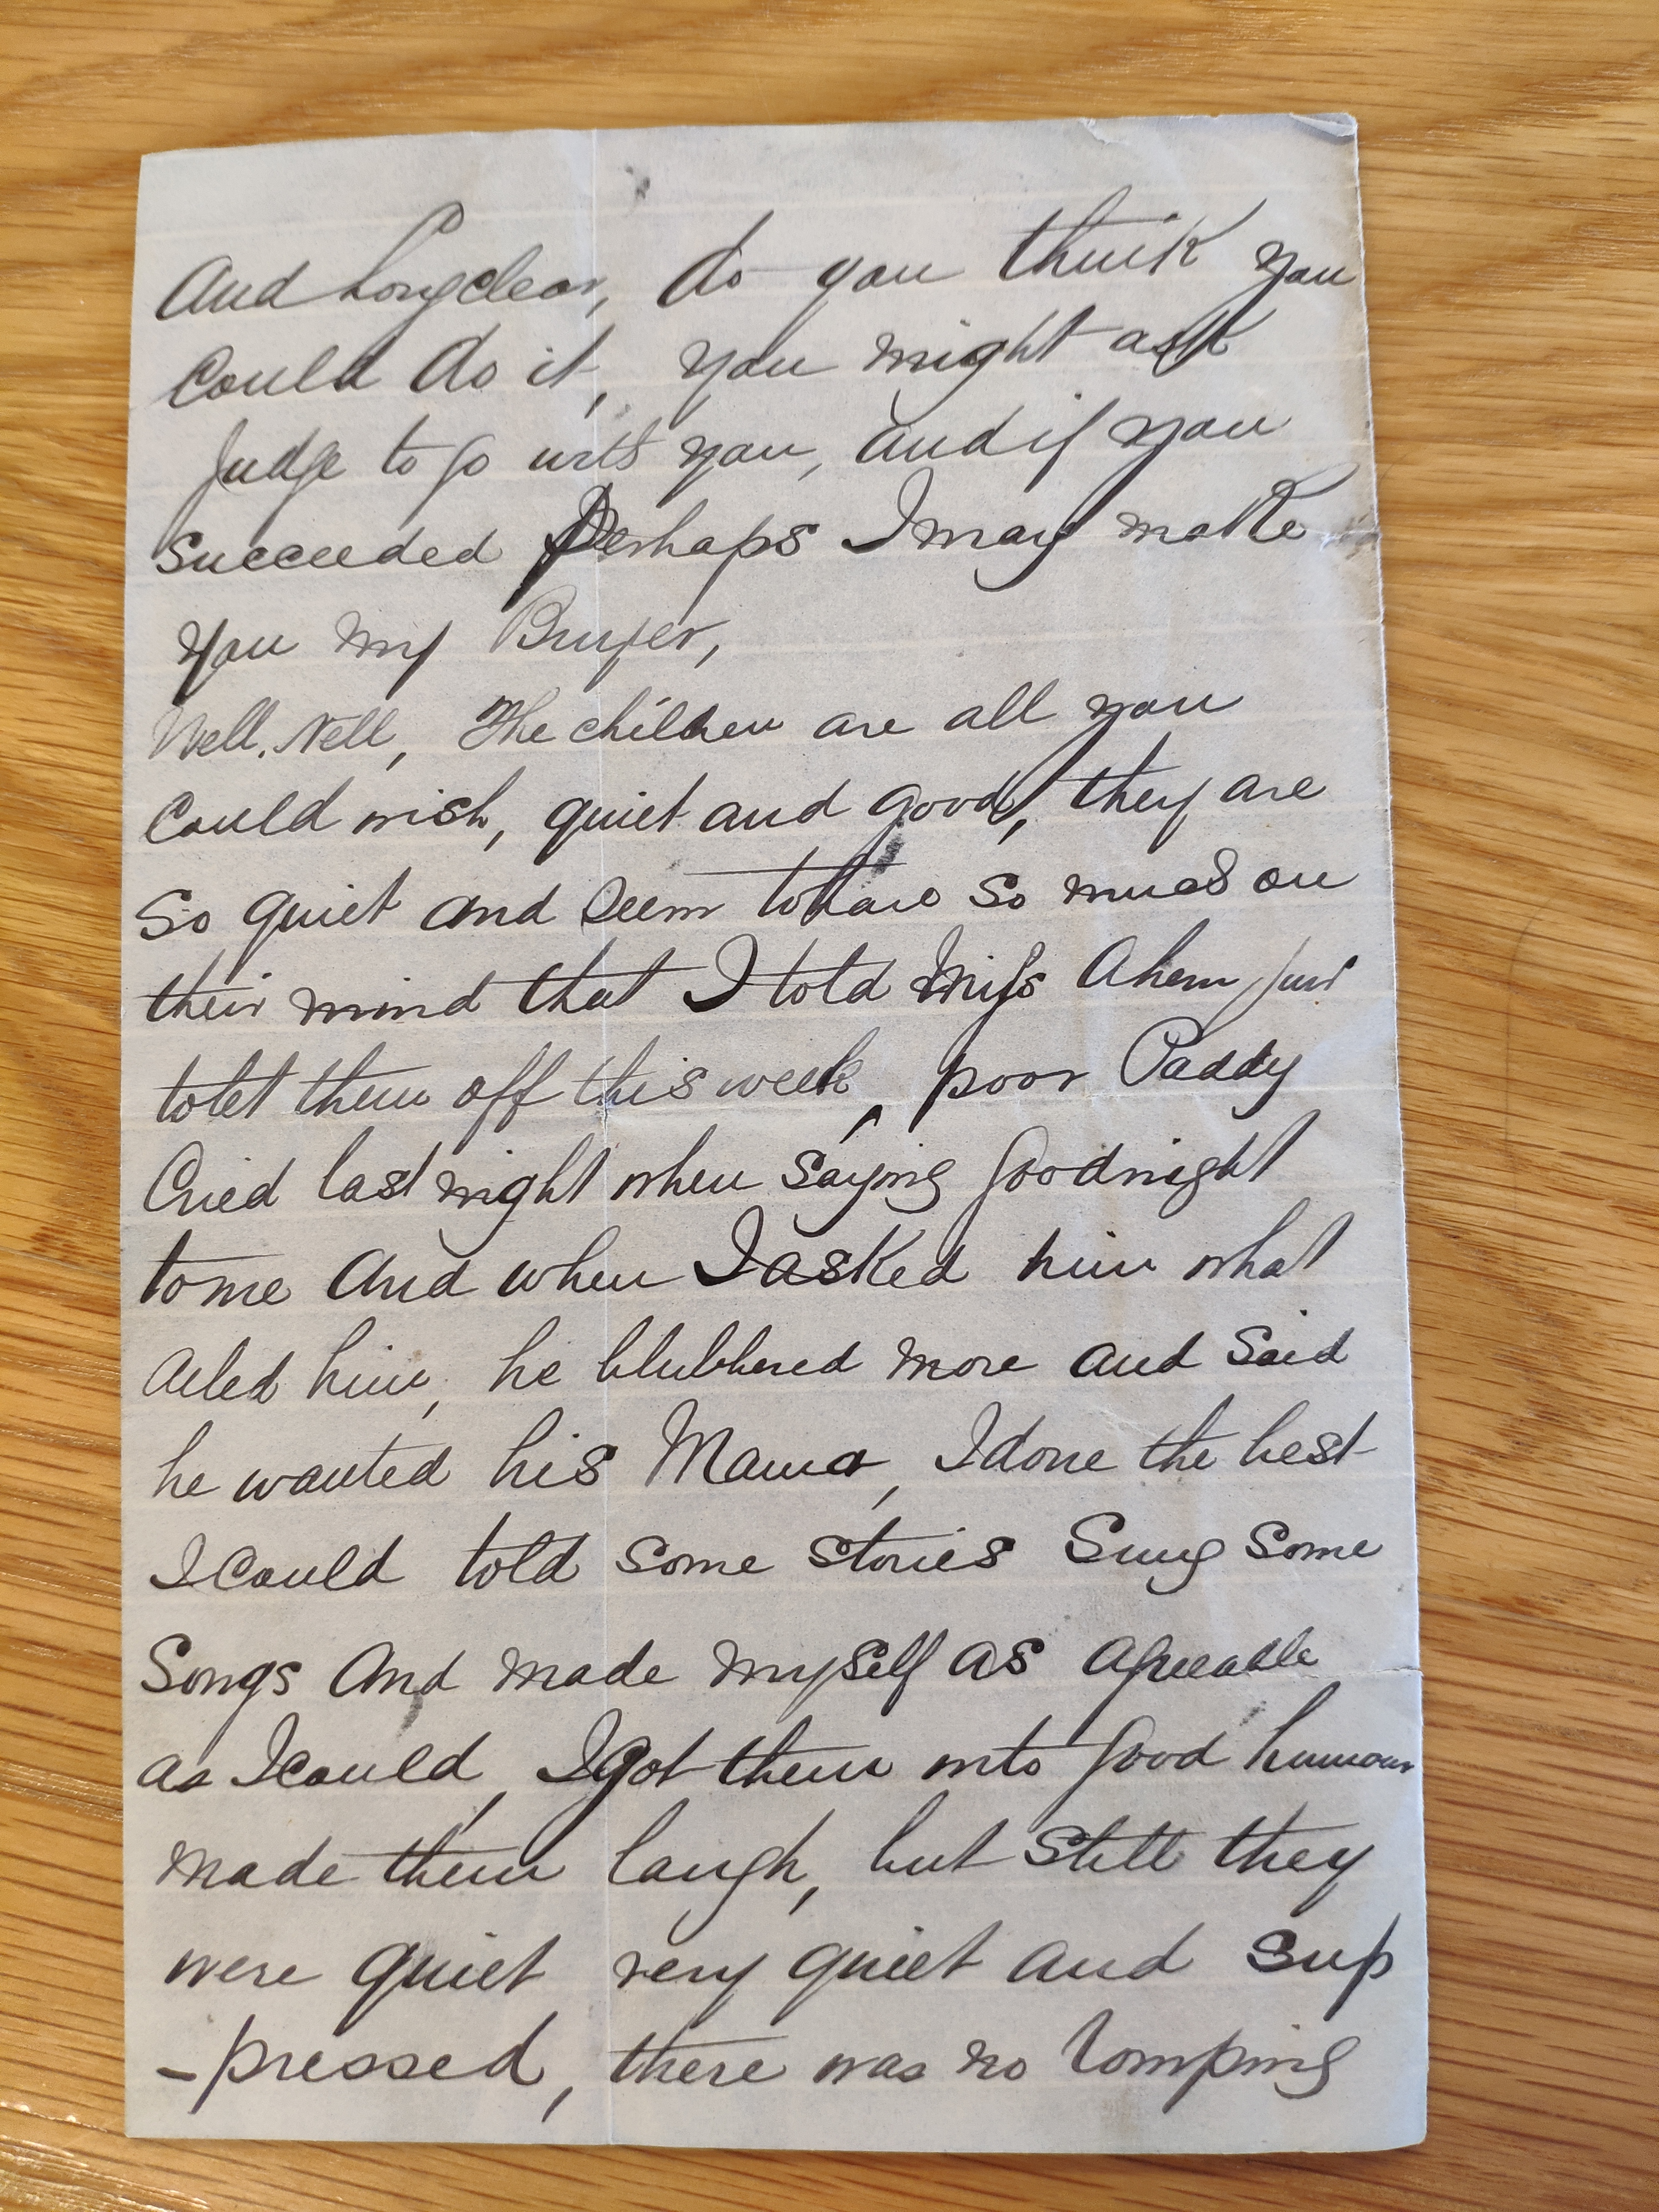 And Longclear, do you think you
Could do it, you might ask
Judge to go with you, and if you
Succeeded Perhaps I may make
You my Buyer,
Well, Nell, The children are all you
Could wish, quiet and good, they are
So quiet and Seem to have So much on
their mind that I told Miss Ahern just
to let them off this week, poor Paddy
Cried last night when Saying Goodnight
to me And when I asked him what
Ailed him, he blubbered more and Said
he wanted his Mama, I done the best
I Could told Some Stories Sung Some
Songs And made myself as Agreeable
as I could, I got them into Good humour
Made them laugh, but Still they
were quiet very quiet and Sup
-pressed, there was no romping